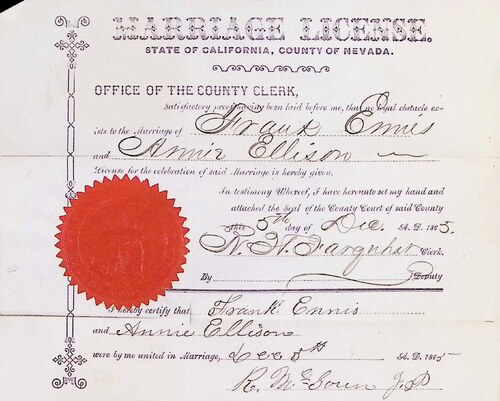 MARRIAGE LICENSE.
STATE OF CALIFORNIA, COUNTY OF NEVADA.
OFFICE OF THE COUNTY CLERK,
Satisfactory proof having been laid before me, that no legal obstacle ex-
ists to the Marriage of Frank Ennis
and Annie Ellison
License for the celebration of said Marriage is hereby given.
In testimony Whereof, I have hereunto set my hand and
attached the Seal of the County Court of said County
this 5th day of Dec. A. D. 18
Farquhar Clerk.
By Deputy
I hereby certify that Frank Ennis
and Annie Ellison
were by me united in Marriage, Dec 5th A. D. 18
J.P